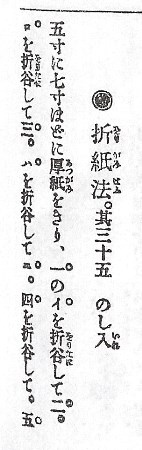 ◉折紙法。其三十五　のし入
五寸に七寸ほどに厚紙をきり、一のイを折谷して二。
ロを折谷して三。ハを折谷してニ。四を折谷して。五